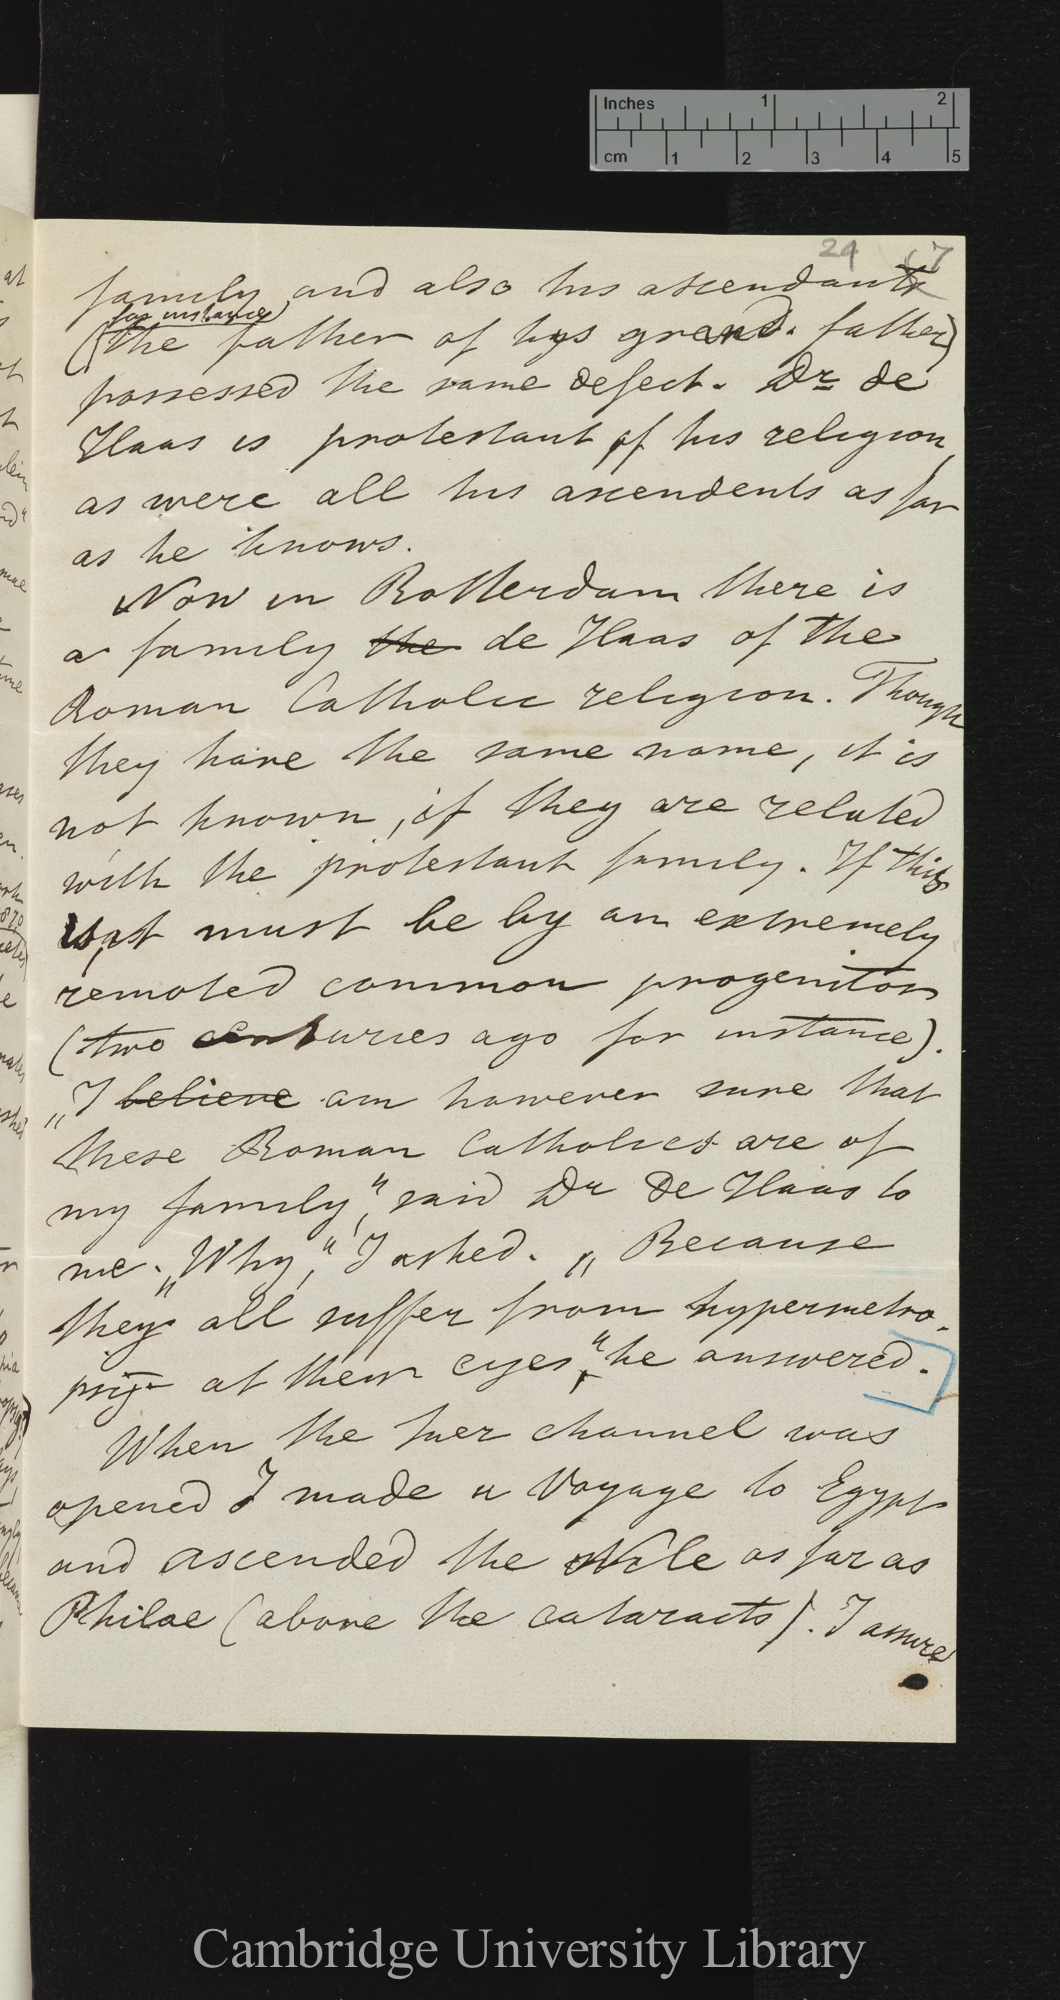 Inches 1 2
cm 1 2 3 4 5
24 (7
family and also his ascendants
(for instance)
(the father of his grand-father)
possessed the same defect. Dr de
Haas is protestant of his religion,
as were all his ascendents as far
as he knows.
Now in Rotterdam there is
a family the de Haas of the
Roman Catholic religion. Though
they have the same name, it is
not known, if they are related
with the protestant family. If this
is, it must be by an extremely
remoted common progenitor
(two centuries ago for instance).
„I believe am however sure that
these Roman Catholics are of
my family“, said Dr de Haas to
me. „Why,“ I asked. „Because
they all suffer from hypermetro-
pij at their eyes“, he answered.
When the Suez channel was
opened I made a voyage to Egypt
and ascended the Nile as far as
Philae (above the cataracts). I assure
Cambridge University Library